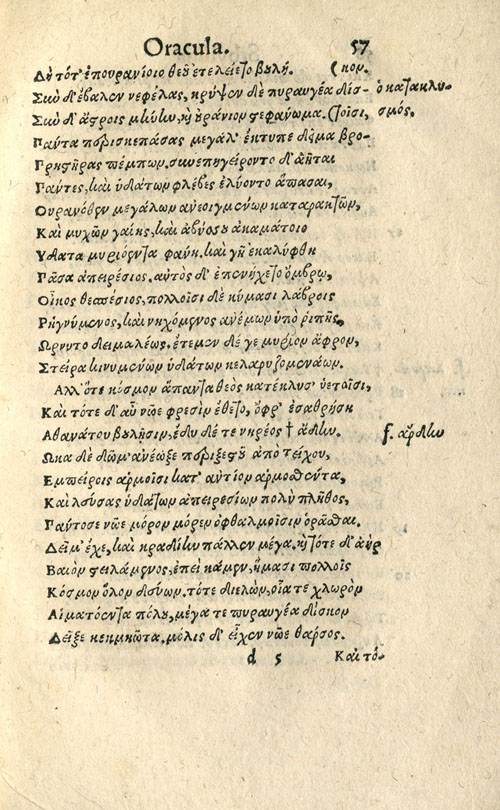 Oracula. 57
Δὴ τότ' ἐπουρανίοιο θεοῦ ετελείετο βουλή. (κον.
Σὺν δ' ἔβαλεν νεφέλας, κρύψεν δὲ πυραυγέα δίσ-
ὁ κατακλυ-
Σὺν δ' ἄστροις μήνην, καὶ οὐράνιον στεφάνωμα. (τοῖσι,
σμός.
Πάντα περισκεπάσας μεγάλ' ἔκτυπε δεῖμα βρο-
Πρηστῆρας πέμπων. συνεπηγείροντο δ' ἀῆται
Πάντες, καὶ ὑδάτων φλέβες ἐλύοντο ἅπασαι,
Ουρανόθεν μεγάλων ανεοιγμένων καταρακτῶν,
Καὶ μυχῶν γαίης, καὶ ἀβύσου ἀκαμάτοιο
Υδατα μυριόεντα φάνη, καὶ γῆ ἐκαλύφθη
Πᾶσα ἀπειρέσιος. αυτὸς δ' ἐπενήχετο ὄμβρῳ,
Οἶκος θεσπέσιος, πολλοῖσι δὲ κύμασι λάβροις
Ρηγνύμενος, καὶ νηχόμενος ανέμων ὑπὸ ριπῆς,
Ωρνυτο δειμαλέως. ἔτεμεν δέ γε μυρίον ἄφρον,
Στεῖρα κινυμενῶν ὑδάτων κελαρυζομενάων.
Αλλ' ὅτε κόσμον ἅπαντα θεὸς κατέκλυσ' ὑετοῖσι,
Καὶ τότε δ' αὖ νῶε φρεσὶν ἔθετο, ὄφρ' ἐσαθρήσῃ
Αθανάτου βουλῇσιν, ἔδυ δέ τε νηρέος † ἅδην.
f. ἄρδην
Ωκα δὲ δῶμ' ανέωξε περιξεστοῦ ἀπὸ τείχου,
Εμπείροις ἁρμοῖσι κατ' αυτίον αρμοσθέντα,
Καὶ λεύσας ὑδάτων ἀπειρεσίων πολὺ πλῆθος,
Πάντοσε νῶε μόρον μόρεν ὀφθαλμοῖσιν ὁρᾶσθαι.
Δεῖμ' ἔχε, καὶ κραδίην πάλλεν μέγα. καὶ τότε δ' ἀὴρ
Βαιὸν στειλάμενος, ἐπεὶ κάμεν, ἤμασι πολλοῖς
Κόσμον ὅλον δεύων. τότε διελών, οἷά τε χλωρὸν
Αἱματόεντα πόλον, μέγα τε πυραυγέα δίσκον
Δεῖξε κεκμηκῶτα, μόλις δ' εἶχεν νῶε θάρσος.
d 5 Καὶ τό-